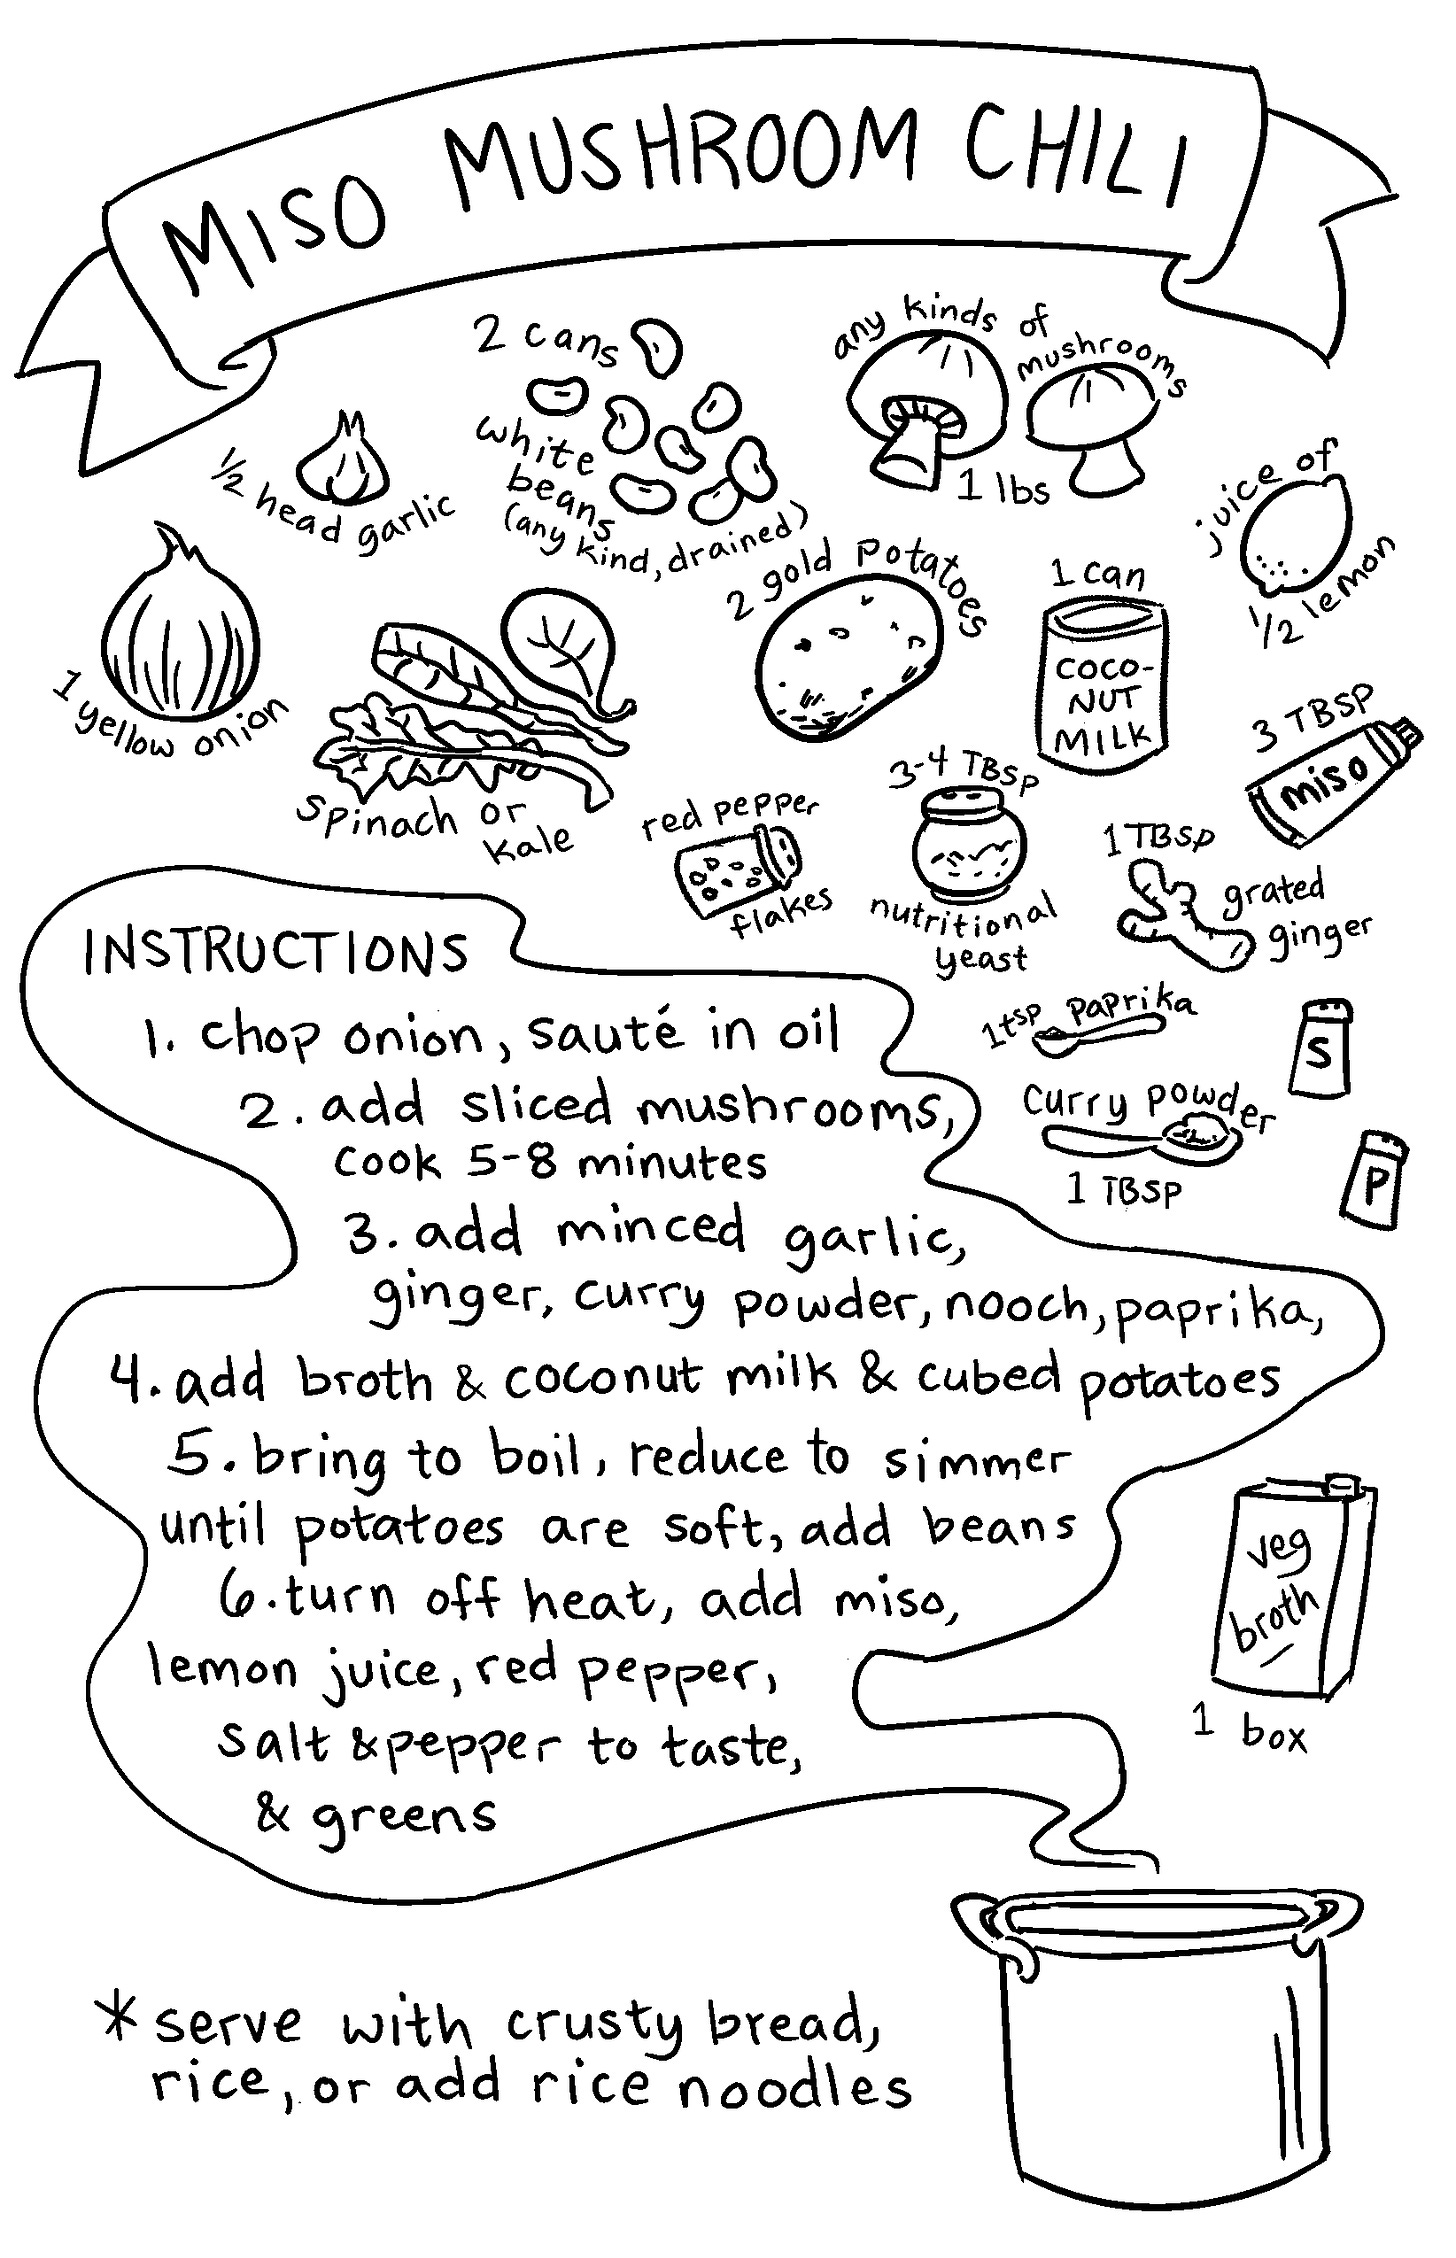 MISO MUSHROOM CHILI
2 cans
white
beans
(any kind, drained)
any kinds of
mushrooms
1 lbs
1/2 head garlic
juice of
1/2 lemon
1 yellow onion
spinach or
kale
2 gold potatoes
1 can
COCO-
NUT
MILK
3 TBSP
miso
red pepper
flakes
3-4 TBSP
nutritional
yeast
1 TBSP
grated
ginger
1 tsp paprika
S
curry powder
1 TBSP
P
INSTRUCTIONS
1. chop onion, sauté in oil
2. add sliced mushrooms,
cook 5-8 minutes
3. add minced garlic,
ginger, curry powder, nooch, paprika,
4. add broth & coconut milk & cubed potatoes
5. bring to boil, reduce to simmer
until potatoes are soft, add beans
6. turn off heat, add miso,
lemon juice, red pepper,
salt & pepper to taste,
& greens
veg
broth
1 box
* serve with crusty bread,
rice, or add rice noodles